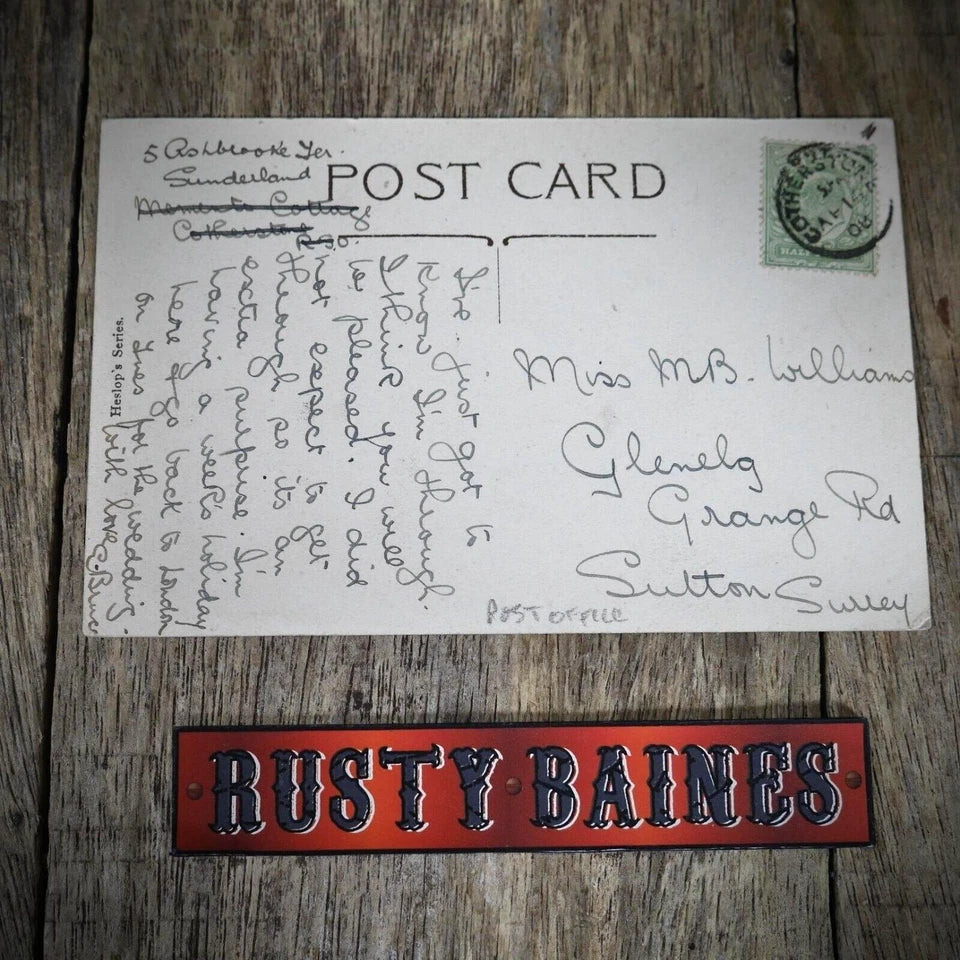 5 Ashbrooke Ter.
Sunderland
Cottage
Cotherstone
R.S.O.
POST CARD
COTHERSTONE
08
HALF
I've just got to
know I'm through.
I think you will
be pleased. I did
not expect to get
through so its an
extra surprise. I'm
having a week's holiday
here & go back to London
on Tues for the wedding.
With love E. Bruce
Heslop's Series.
Miss M.B. Williams
Glenelg
Grange Rd
Sutton Surrey
POST OFFICE
RUSTY BAINES